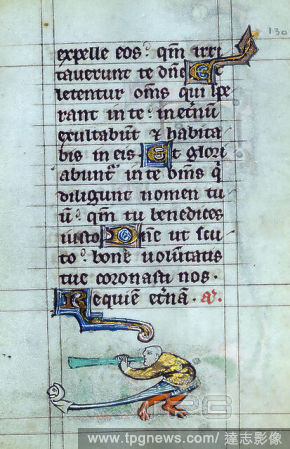 130
expelle eos: qm̄ irri
tauerunt te dn̄e Et
letentur om̄s qui spe
rant in te: in et̄nū
exultabūt & habita
bis in eis Et glori
abunt᷑ in te om̄s q̄
diligunt nomen tu
ū: qm̄ tu benedices
iusto Dn̄e ut scu
to bone uolūtatis
tue coronasti nos.
Requiē et̄nā. a.
www.tpgnews.com/達志影像